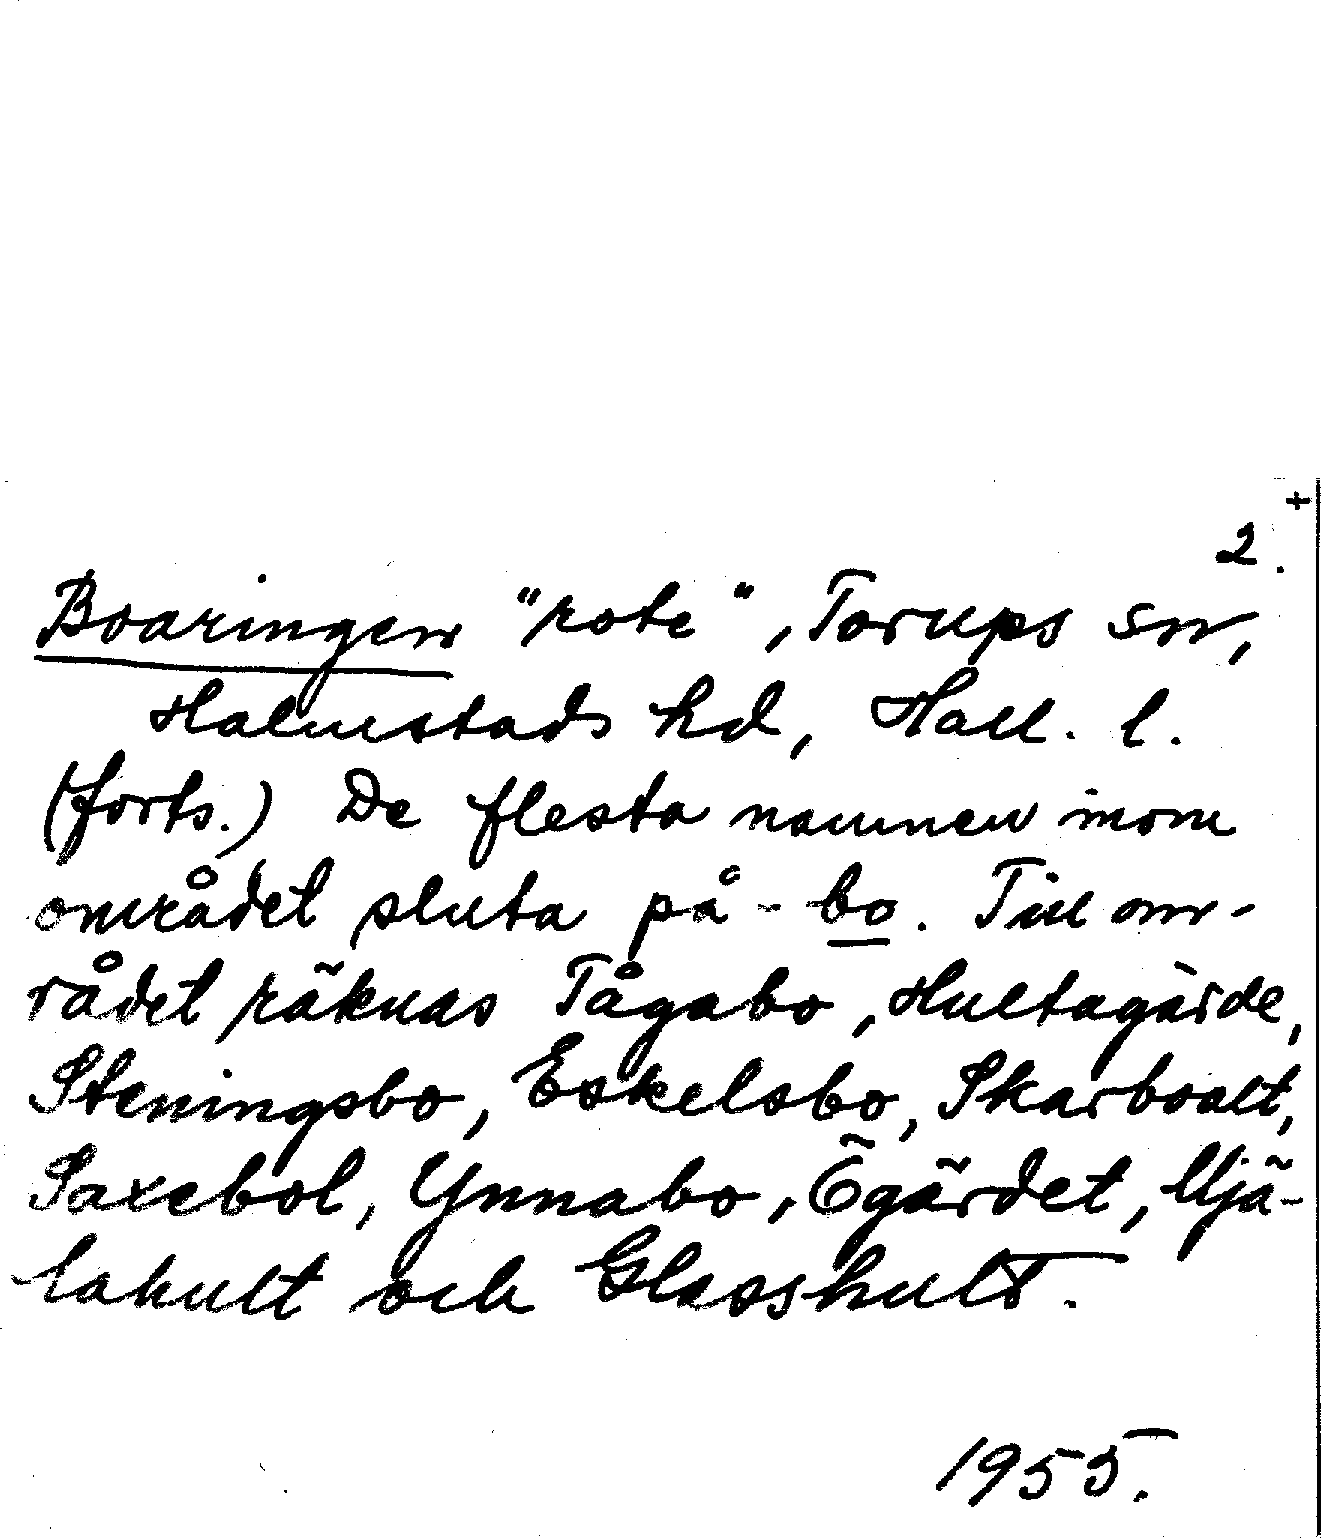 +
2.
Boaringen "rote", Torups sn,
Halmstads hd, Hall. l.
(forts.) De flesta namnen inom
området sluta på -bo. Till om-
rådet räknas Tågabo, Hultagärde,
Steningsbo, Eskelsbo, Skarboalt,
Saxebol, Ynnabo, Ögärdet, Mjä-
lahult och Glasshult.
1955.